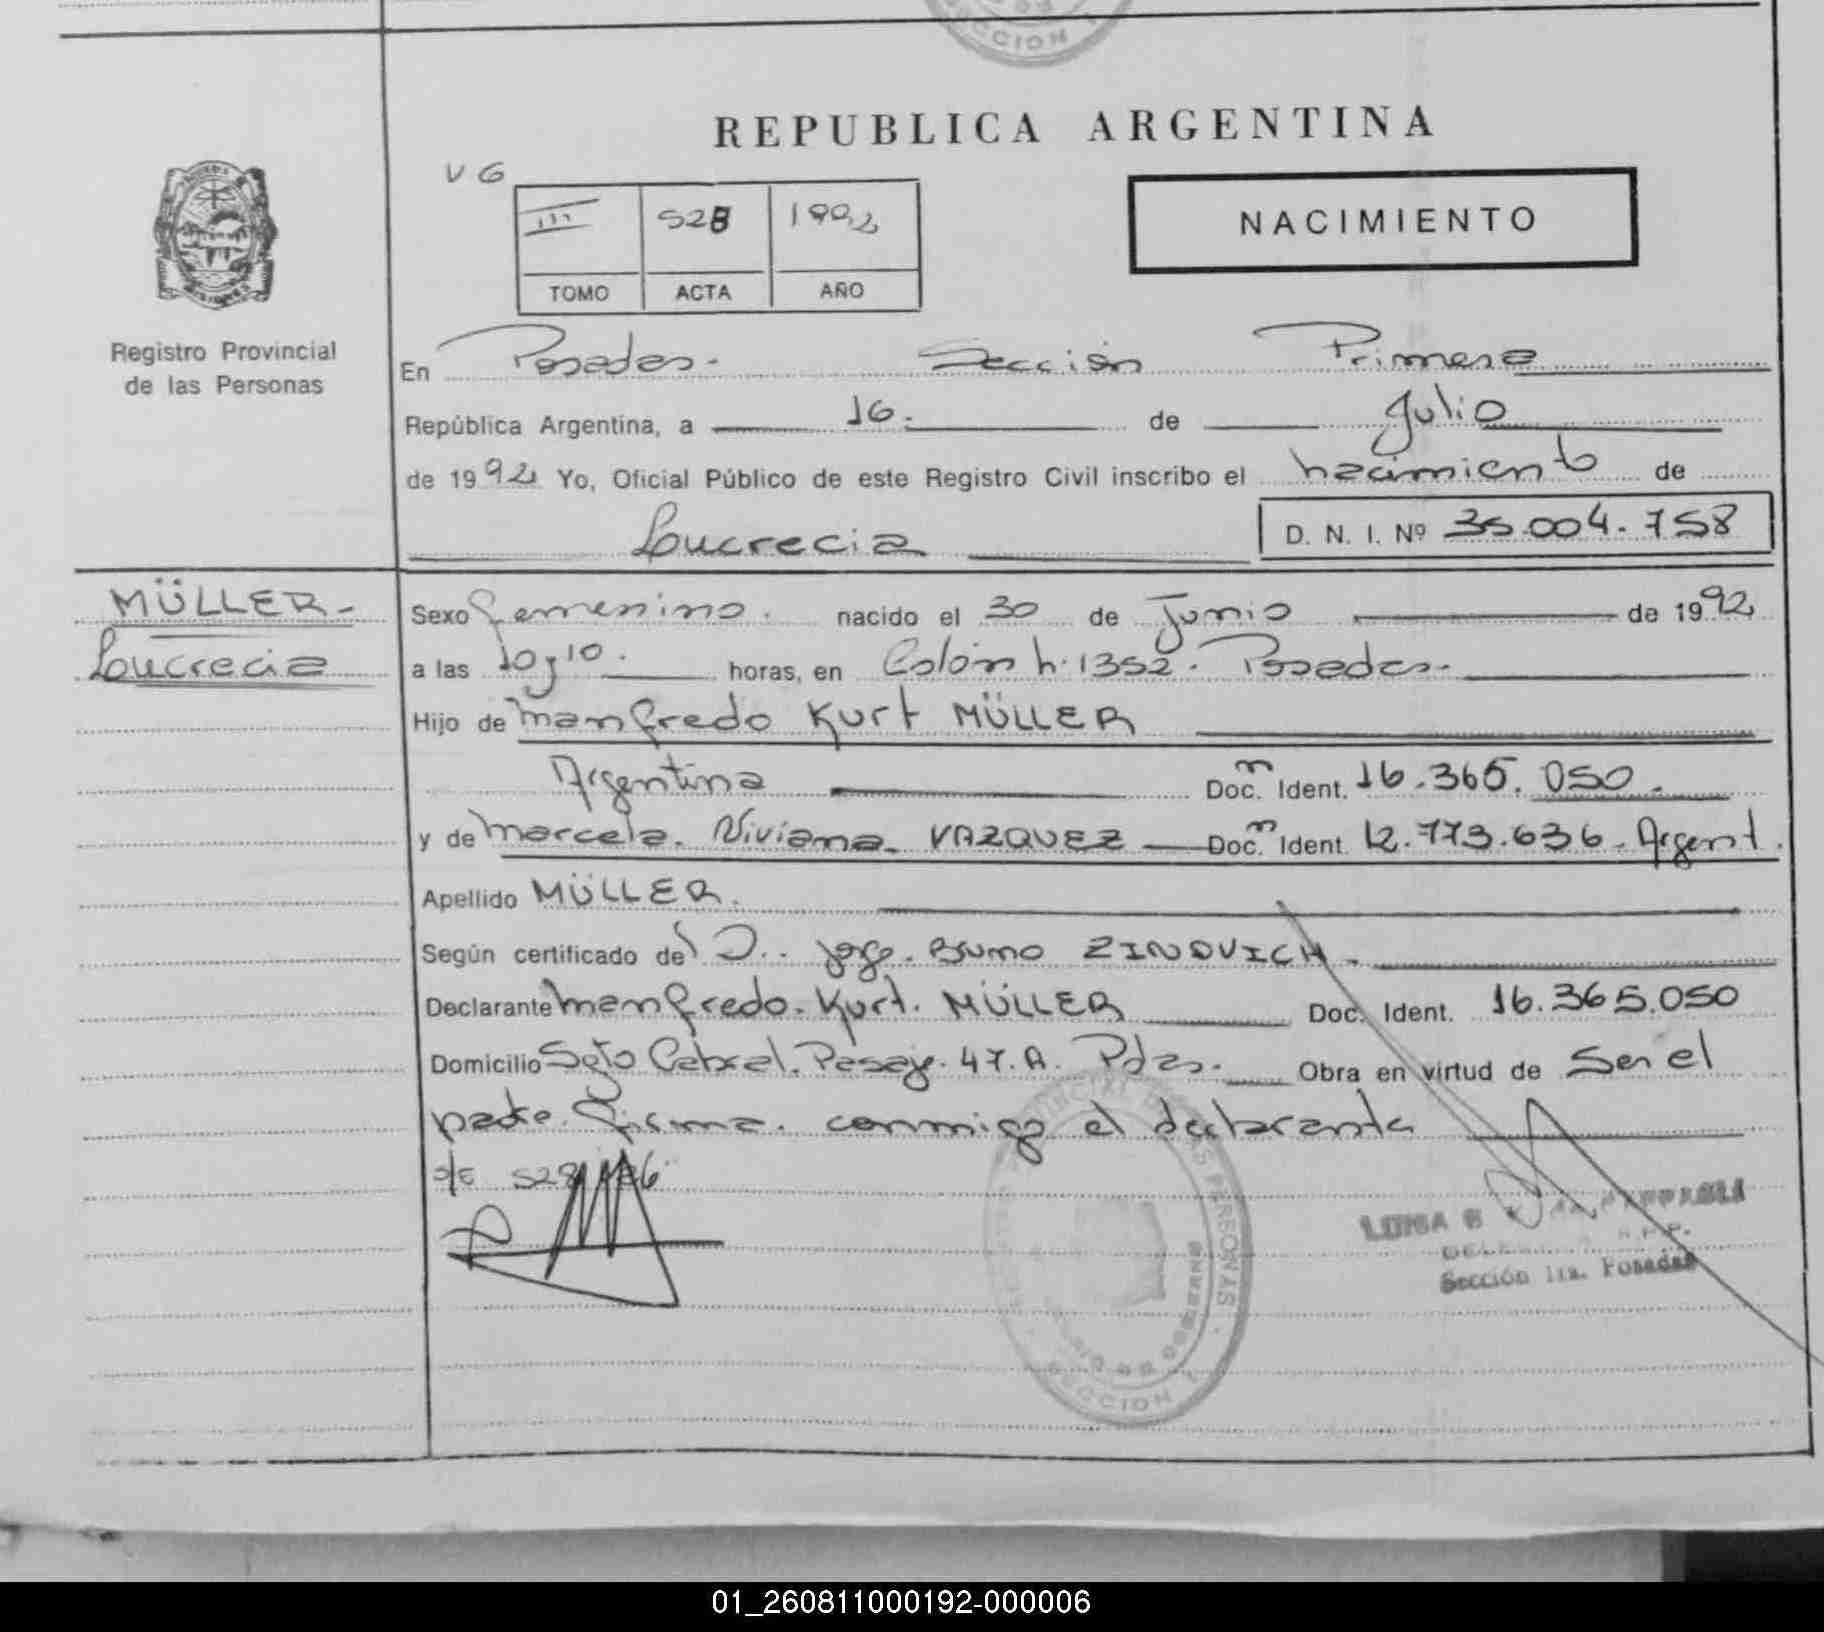 SECCION
REPUBLICA ARGENTINA
V 6
III 528 1992
TOMO ACTA AÑO
NACIMIENTO
Registro Provincial
de las Personas
En Posadas- Sección Primera
República Argentina, a 16. de Julio
de 1992 Yo, Oficial Público de este Registro Civil inscribo el nacimiento de
Loucrecia D. N. I. Nº 35.004.758
MÜLLER-
Loucrecia
Sexo femenino. nacido el 30 de Junio de 1992
a las 10 y 10. horas, en Colón n. 1352. Posadas-
Hijo de Manfredo Kurt MÜLLER
Argentina Doc. m Ident. 16.365.050.
y de Marcela. Viviana. VAZQUEZ Doc. m Ident. 12.773.636. Argent.
Apellido MÜLLER.
Según certificado de D.. Jorge. Bruno ZINOVICH.
Declarante Manfredo. Kurt. MÜLLER Doc. Ident. 16.365.050
Domicilio Sgto Cabral. Pasaje. 47.A. Pdas. Obra en virtud de Ser el
padre. firma. conmigo el declarante
s/e 528
LUISA
Sección 1ra. Posadas
SECCION
01_260811000192-000006